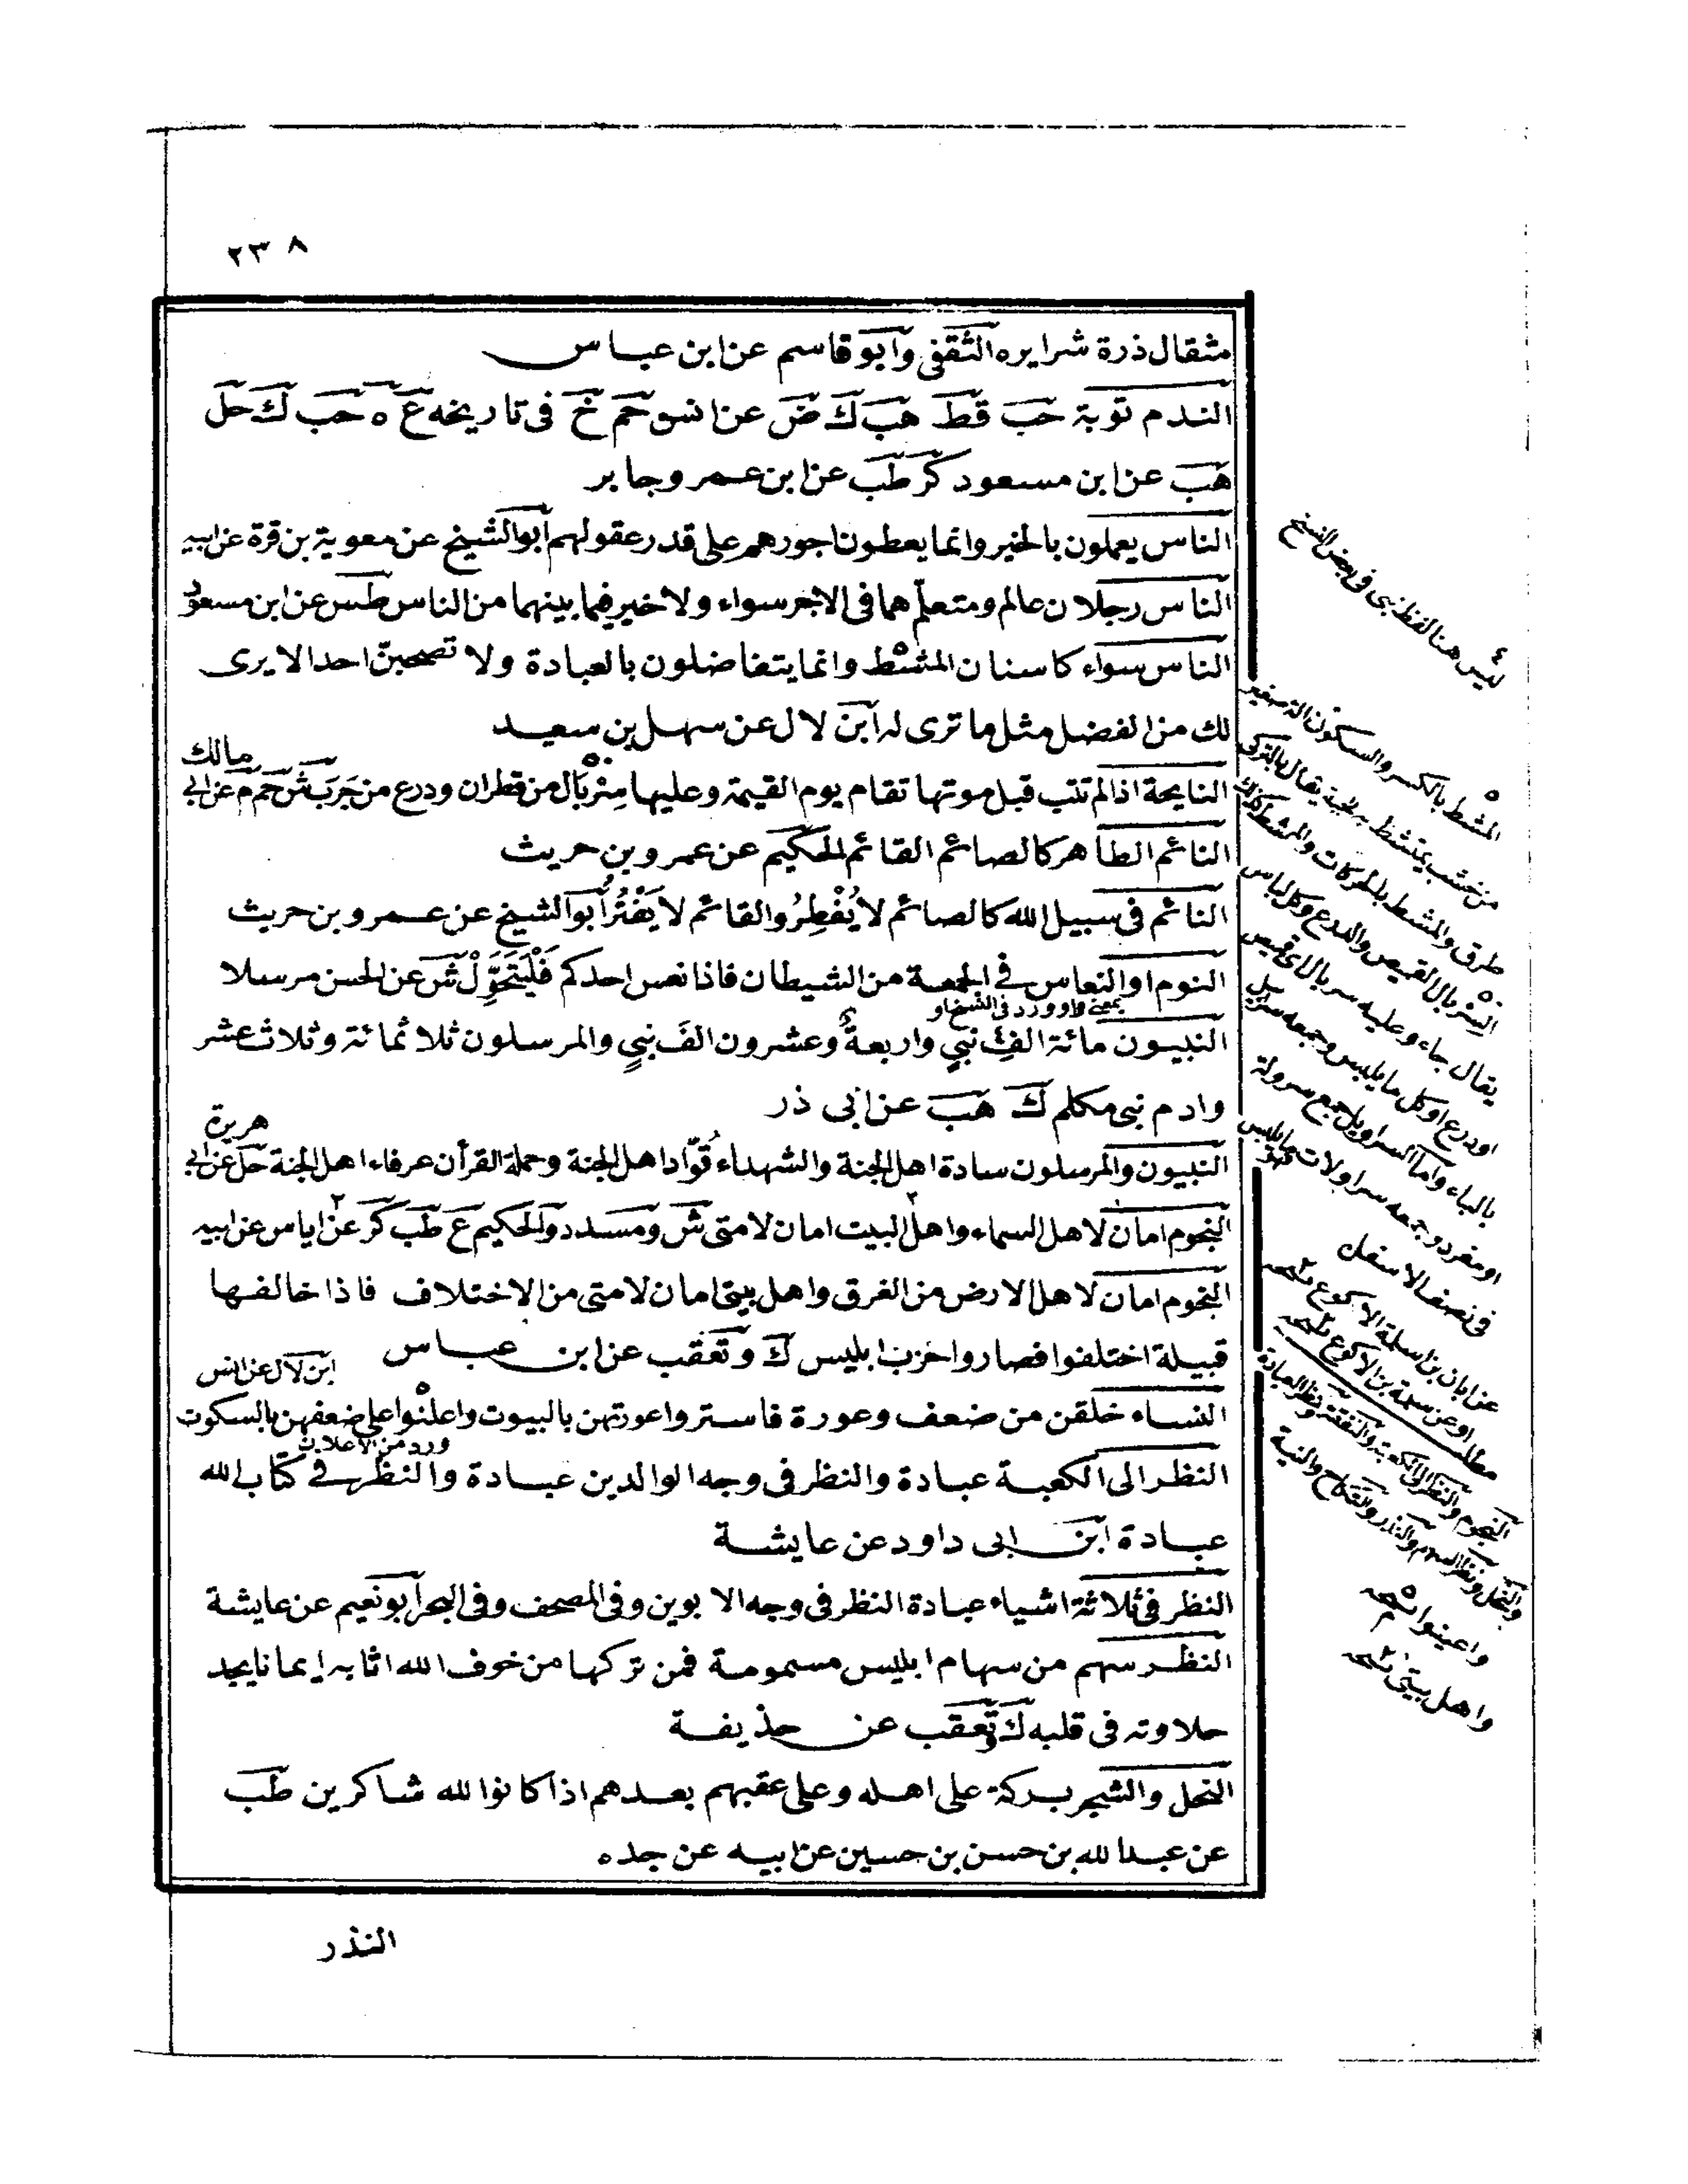 ٢٣٨
مثقال ذرة شرايره الثقفى وابو قاسم عن ابن عباس
الندم توبة حب قط هب ك ض عن انس حم خ فى تاريخه ع ه حب ك حل
هب عن ابن مسعود كر طب عن ابن عمر وجابر
الناس يعملون بالخير وانما يعطون اجورهم على قدر عقولهم ابو الشيخ عن معوية بن قرة عن ابيه
الناس رجلان عالم ومتعلّم هما فى الاجر سواء ولا خير فيما بينهما من الناس طس عن ابن مسعود
الناس سواء كاسنان المشط وانما يتفاضلون بالعبادة ولا تصحبنّ احدا لا يرى
لك من الفضل مثل ما ترى له ابن لال عن سهل بن سعيد
النايحة اذا لم تتب قبل موتها تقام يوم القيمة وعليها سِرْبَال من قطران ودرع من جَرَب ش حم م عن ابى مالك
النائم الطاهر كالصائم القائم الحكيم عن عمرو بن حريث
النائم فى سبيل الله كالصائم لا يُفْطِرُ والقائم لا يَفْتُرُ ابو الشيخ عن عمرو بن حريث
النوم او النعاس فى الجمعة من الشيطان فاذا نعس احدكم فَلْيَتَحَوَّلْ ش عن الحسن مرسلا
بمعنى واو وورد فى النسخ او
النبيون مائة الفِ نبىٍ واربعةٌ وعشرون الفَ نبىٍ والمرسلون ثلاثمائة وثلاث عشر
وادم نبى مكلم ك هب عن ابى ذر
النبيون والمرسلون سادة اهل الجنة والشهداء قُوّاد اهل الجنة وحملة القرأن عرفاء اهل الجنة حل عن ابى هريرة
النجوم امان لاهل السماء واهل البيت امان لامتى ش ومسدد والحكيم ع طب كر عن اياس عن ابيه
النجوم امان لاهل الارض من الغرق واهل بيتى امان لامتى من الاختلاف فاذا خالفها
قبيلة اختلفوا فصاروا حزب ابليس ك وتعقب عن ابن عباس
النساء خلقن من ضعف وعورة فاستروا عورتهن بالبيوت واعلنوا على ضعفهن بالسكوت ابن لال عن انس
ورد من الاعلان
النظر الى الكعبة عبادة والنظر فى وجه الوالدين عبادة والنظر فى كتاب الله
عبادة ابن ابى داود عن عايشة
النظر فى ثلاثة اشياء عبادة النظر فى وجه الابوين وفى المصحف وفى البحر ابو نعيم عن عايشة
النظر سهم من سهام ابليس مسمومة فمن تركها من خوف الله اثابه ايمانا يجد
حلاوته فى قلبه ك وتعقب عن حذيفة
النخل والشجر بركة على اهله وعلى عقبهم بعدهم اذا كانوا لله شاكرين طب
عن عبد الله بن حسن بن حسين عن ابيه عن جده
ليس هنا لفظ نبى فى بعض النسخ
المشط بالكسر والسكون الة صغير
من خشب يمتشط به لحية يقال بالتركى
طرق والمشط بالحركات والمشط كذلك
السربال القميص والدرع وكل لباس
يقال جاء وعليه سربال اى قميص
او درع او كل ما يلبس وجمعه سرابيل
بالباء واما السراويل جمع سرولة
او مفرد وجمعه سراولات ما يلبس
فى نصف الاسفل
عن ابان بن سلمة الاكوع نسخه
مطلب او عن سلمة بن الاكوع نسخه
النجوم والنظر الى الكعبة والنفقة ونظر العبادة
والنخل ونظر السهم والنذر والنكاح والنية
واعينوا نسخه
واهل بيتى نسخه
النذر